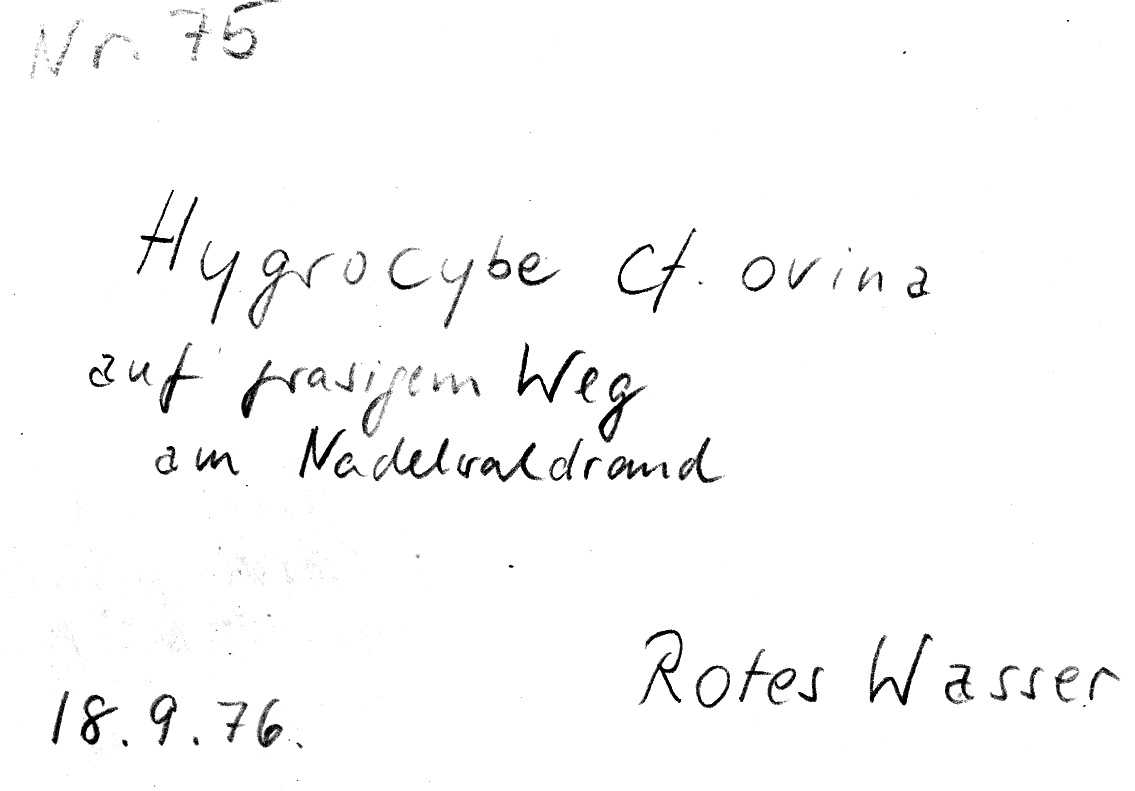 Nr. 75
Hygrocybe cf. ovina
auf grasigem Weg
am Nadelwaldrand
Rotes Wasser
18.9.76.